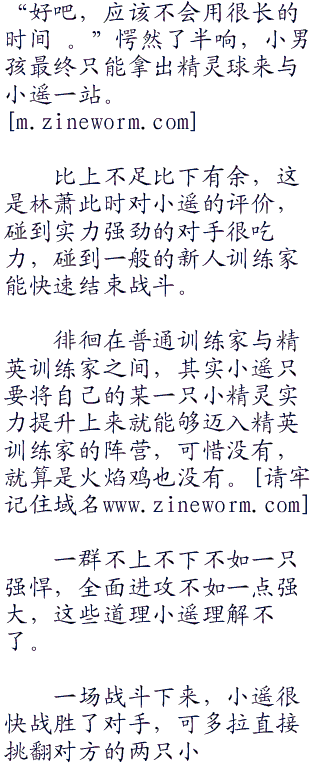 “好吧，应该不会用很长的
时间 。”愕然了半响，小男
孩最终只能拿出精灵球来与
小遥一站。
[m.zineworm.com]
比上不足比下有余，这
是林萧此时对小遥的评价，
碰到实力强劲的对手很吃
力，碰到一般的新人训练家
能快速结束战斗。
徘徊在普通训练家与精
英训练家之间，其实小遥只
要将自己的某一只小精灵实
力提升上来就能够迈入精英
训练家的阵营，可惜没有，
就算是火焰鸡也没有。[请牢
记住域名www.zineworm.com]
一群不上不下不如一只
强悍，全面进攻不如一点强
大，这些道理小遥理解不
了。
一场战斗下来，小遥很
快战胜了对手，可多拉直接
挑翻对方的两只小